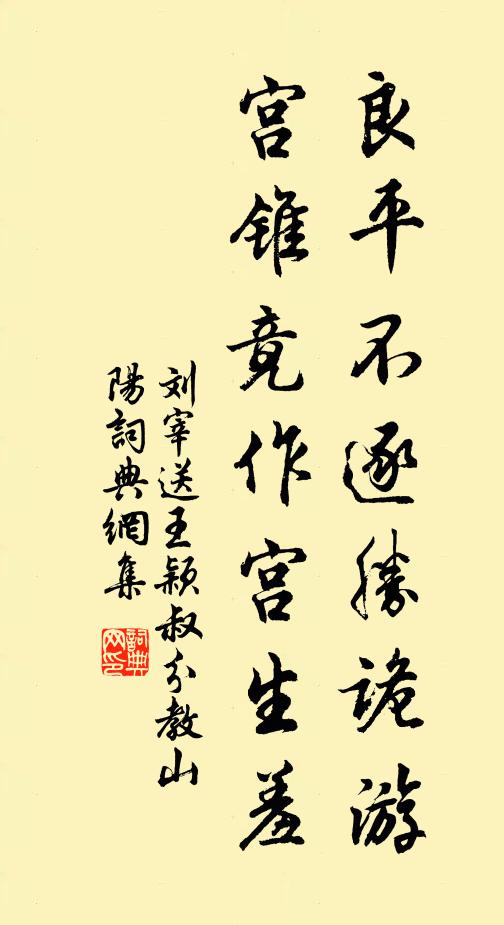 良平不逐胜诡游
宫锥竟作宫生羞
刘宰送王颖叔分教山
陽詞典網集
詞典网印